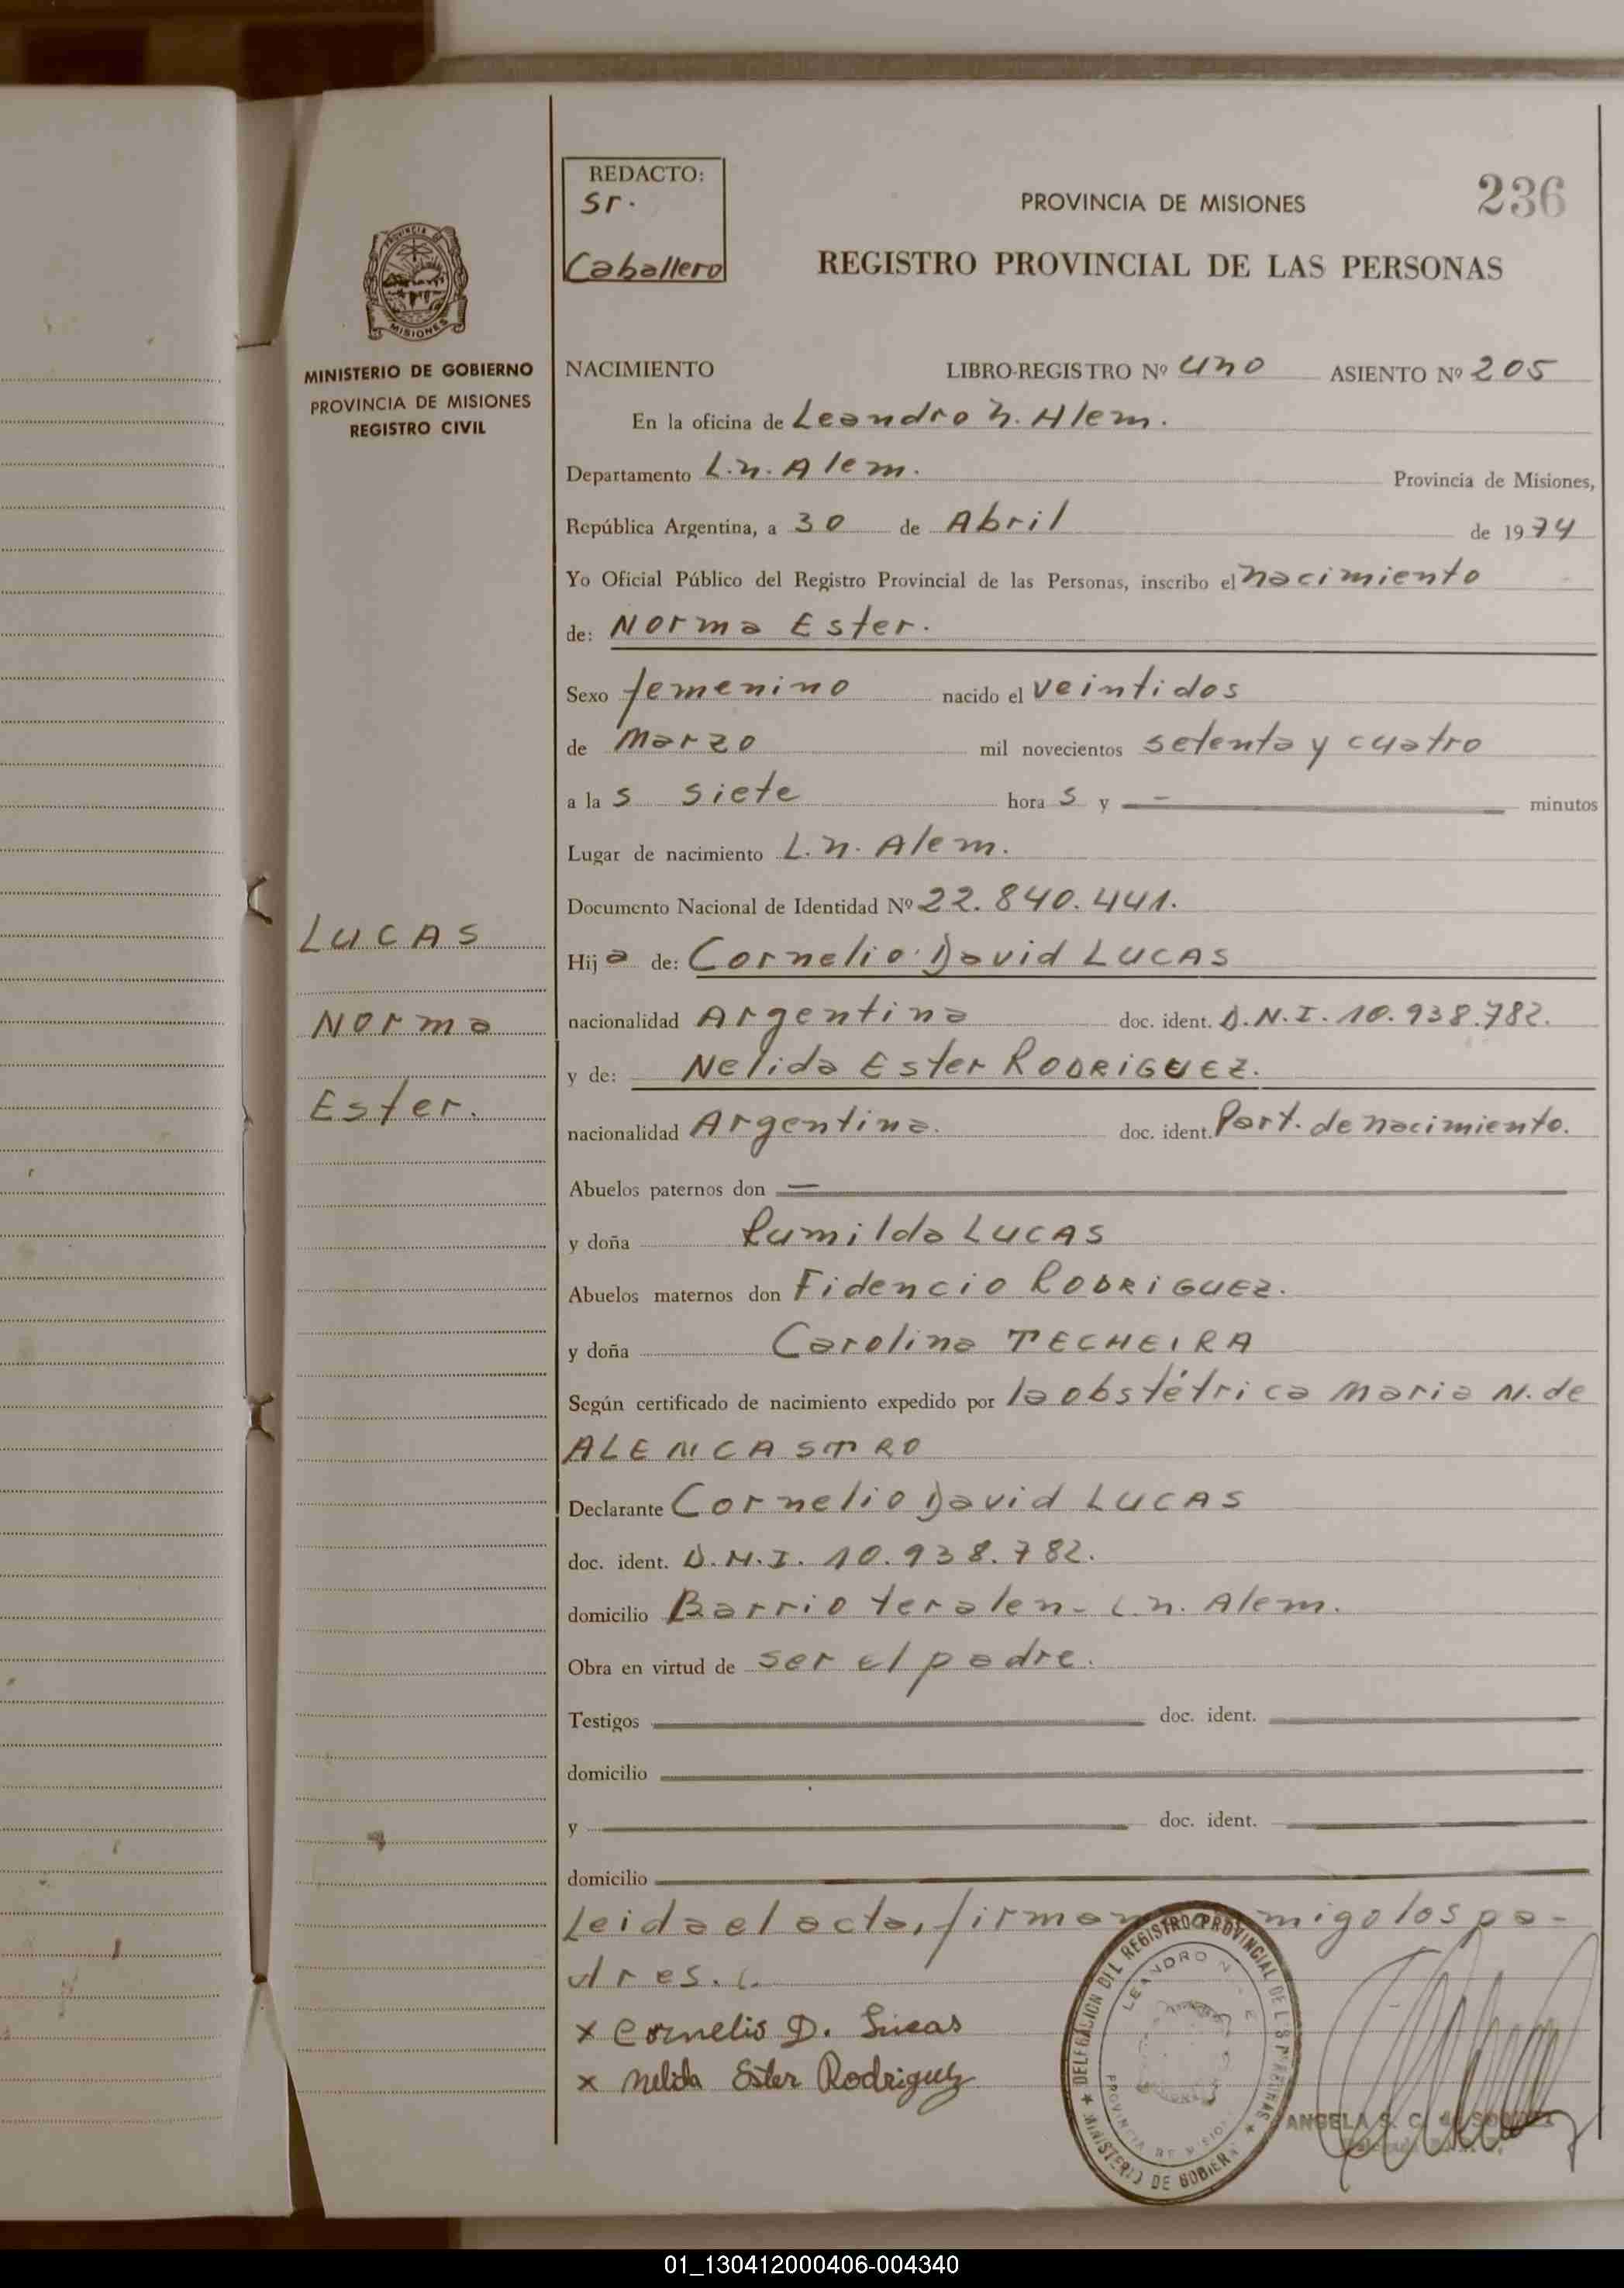 REDACTO:
Sr.
Caballero
PROVINCIA DE MISIONES
236
REGISTRO PROVINCIAL DE LAS PERSONAS
PROVINCIA DE
MISIONES
MINISTERIO DE GOBIERNO
PROVINCIA DE MISIONES
REGISTRO CIVIL
NACIMIENTO LIBRO-REGISTRO Nº uno ASIENTO Nº 205
En la oficina de Leandro N. Alem.
Departamento L.N. Alem. Provincia de Misiones,
República Argentina, a 30 de Abril de 1974
Yo Oficial Público del Registro Provincial de las Personas, inscribo el nacimiento
de: Norma Ester.
Sexo femenino nacido el veintidos
de Marzo mil novecientos setenta y cuatro
a la s siete hora s y — minutos
Lugar de nacimiento L.N. Alem.
Documento Nacional de Identidad Nº 22.840.441.
LUCAS
Norma
Ester.
Hij a de: Cornelio David LUCAS
nacionalidad Argentina doc. ident. D.N.I. 10.938.782.
y de: Nelida Ester RODRIGUEZ.
nacionalidad Argentina. doc. ident. Part. de nacimiento.
Abuelos paternos don —
y doña Rumilda LUCAS
Abuelos maternos don Fidencio RODRIGUEZ.
y doña Carolina TECHEIRA
Según certificado de nacimiento expedido por la obstétrica Maria N. de
ALENCASTRO
Declarante Cornelio David LUCAS
doc. ident. D.N.I. 10.938.782.
domicilio Barrio teralen - L.N. Alem.
Obra en virtud de ser el padre.
Testigos doc. ident.
domicilio
y doc. ident.
domicilio
Leida el acta, firman migo los pa-
dres.
x Cornelio D. Lucas
x Nelida Ester Rodriguez
DELEGACION DEL REGISTRO PROVINCIAL DE LAS PERSONAS
LEANDRO N.
PROVINCIA DE MISIONES
MINISTERIO DE GOBIERNO
ANGELA S. C. de
01_130412000406-004340